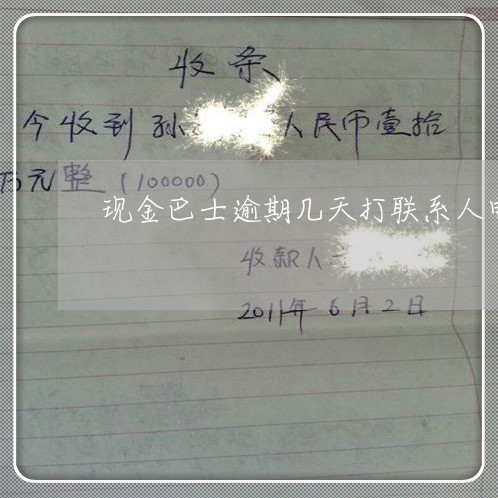 收条
今收到孙 人民币壹拾
万元整（100000）
现金巴士逾期几天打联系人
收款人
2011年6月2日